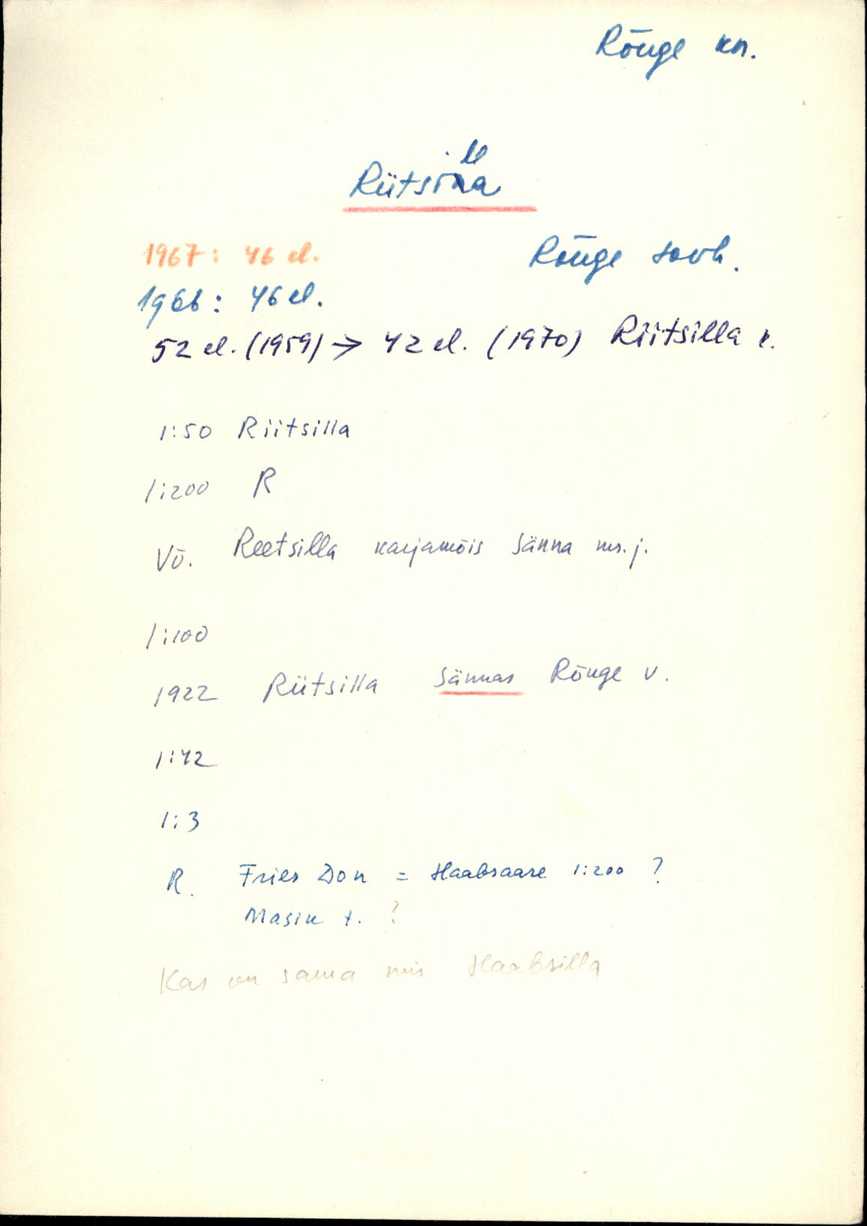 Rõuge kn.
Riitsilla
1967: 46 el. Rõuge sovh.
1966: 46 el.
52 el. (1959) → 42 el. (1970) Riitsilla k.
1:50 Riitsilla
1:200 R
Võ. Reetsilla karjamõis Sänna ms. j.
1:100
1922 Riitsilla Sännas Rõuge v.
1:42
1:3
R. Fries Don = Haabsaare 1:200 ?
Masin t. ?
Kas on sama mis Haabsilla